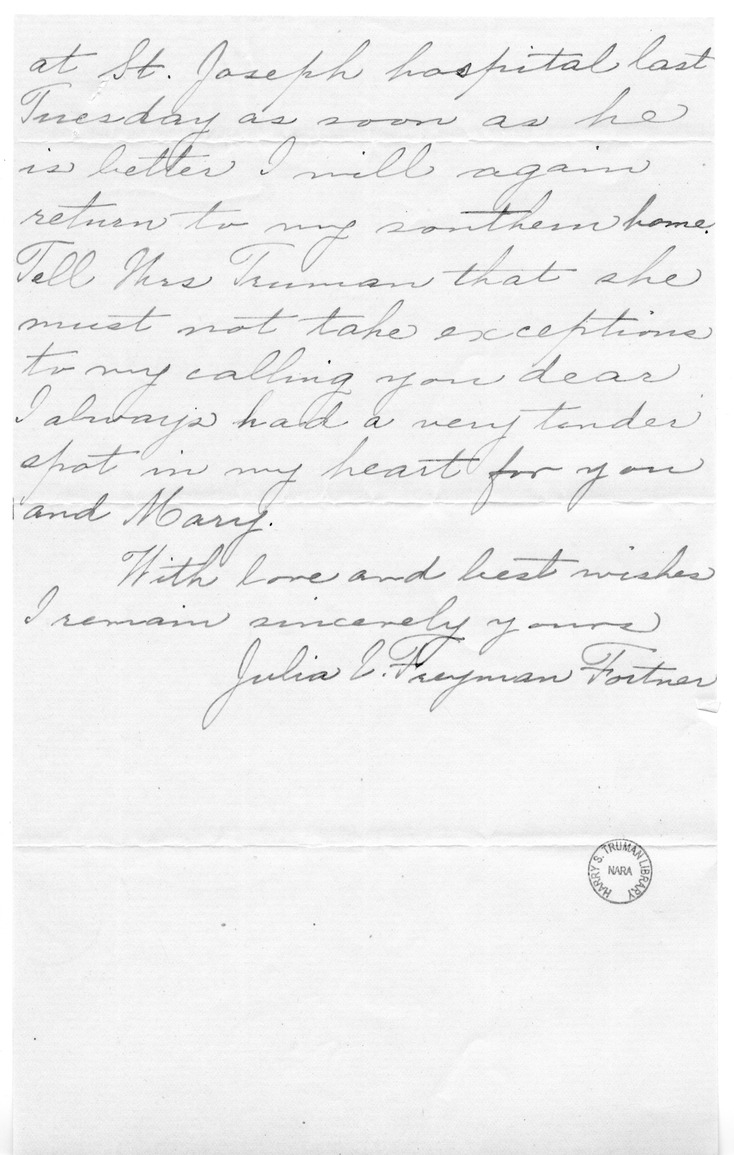 at St. Joseph hospital last
Tuesday as soon as he
is better I will again
return to my southern home.
Tell Mrs Truman that she
must not take exceptions
to my calling you dear
I always had a very tender
spot in my heart for you
and Mary.
With love and best wishes
I remain sincerely yours
Julia E. Freyman Fortner
HARRY S. TRUMAN LIBRARY
NARA